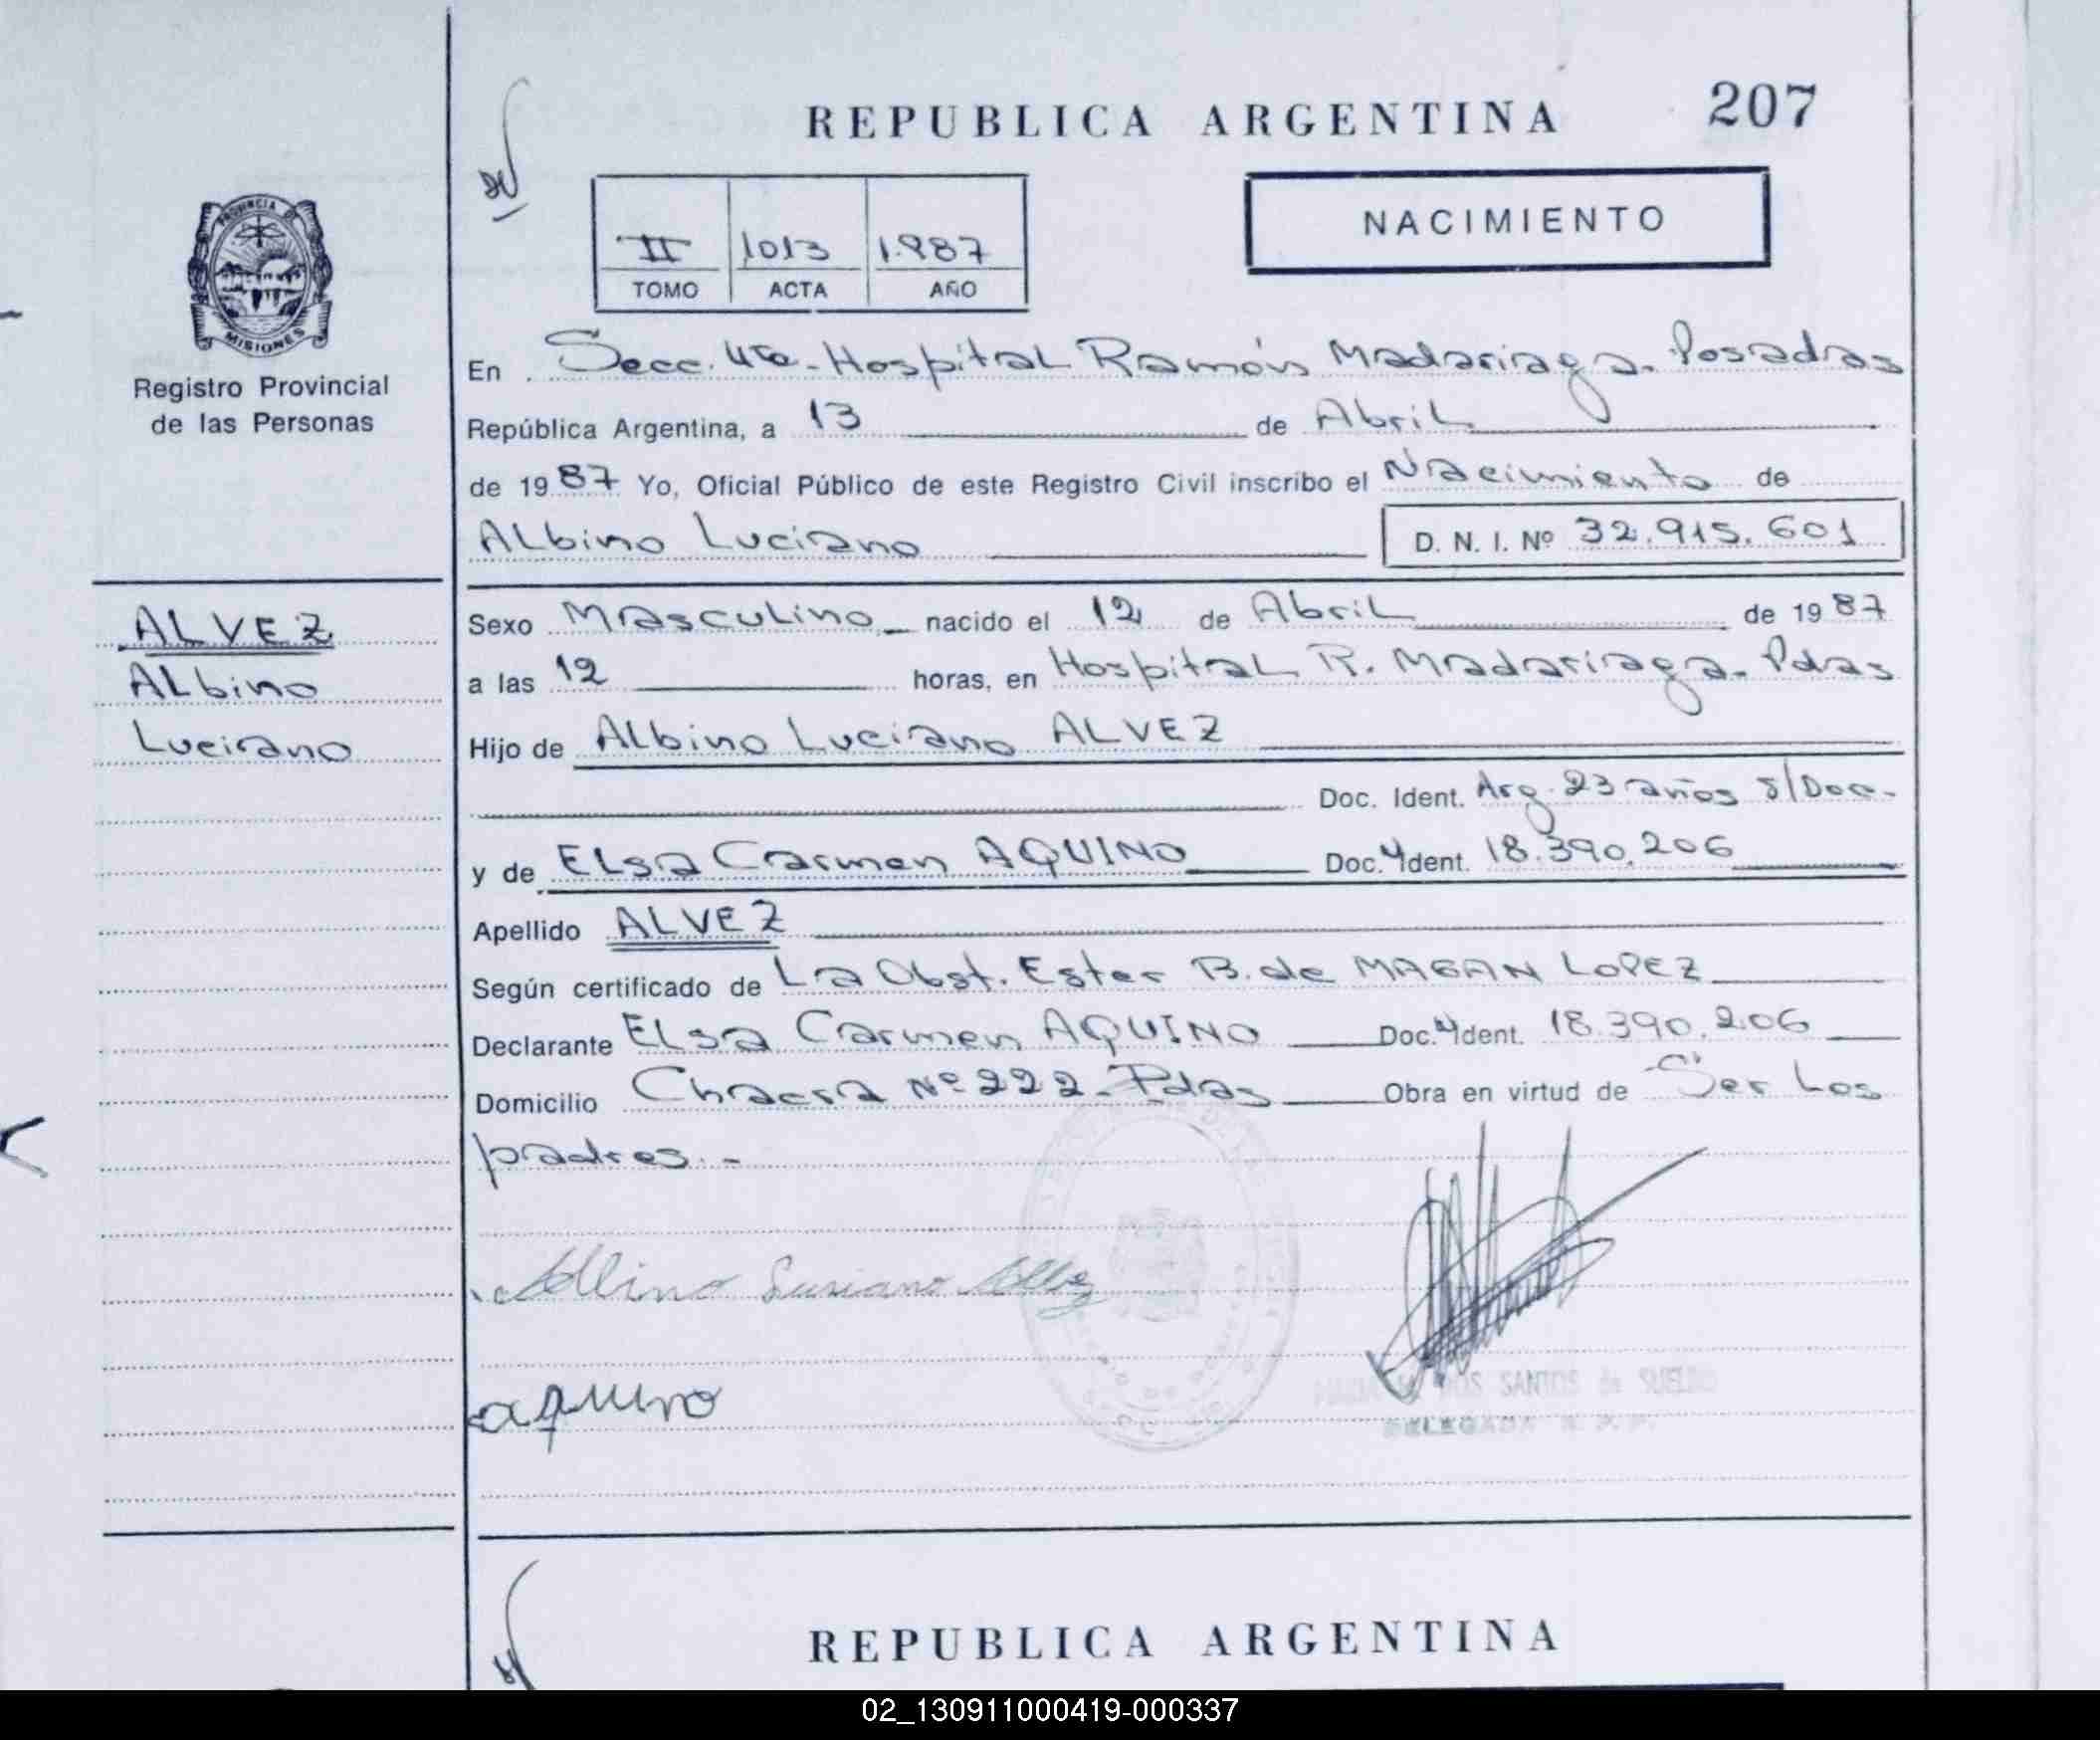 REPUBLICA ARGENTINA
207
PROVINCIA DE
MISIONES
Registro Provincial
de las Personas
II 1013 1.987
TOMO ACTA AÑO
NACIMIENTO
En Secc. 4ta. Hospital Ramón Madariaga. Posadas
República Argentina, a 13 de Abril
de 1987 Yo, Oficial Público de este Registro Civil inscribo el Nacimiento de
Albino Luciano D. N. I. Nº 32.915.601
ALVEZ
Albino
Luciano
Sexo Masculino nacido el 12 de Abril de 1987
a las 12 horas, en Hospital R. Madariaga. Pdas
Hijo de Albino Luciano ALVEZ
Doc. Ident. Arg. 23 años s/Doc.-
y de Elsa Carmen AQUINO Doc. Ident. 18.390.206
Apellido ALVEZ
Según certificado de La Obst. Ester B. de MAGAN LOPEZ
Declarante Elsa Carmen AQUINO Doc. Ident. 18.390.206
Domicilio Chacra Nº 222- Pdas Obra en virtud de Ser Los
padres.-
Albino Luciano Alvez
DOS SANTOS de
DELEGADA R. P. P.
aquino
REPUBLICA ARGENTINA
02_130911000419-000337